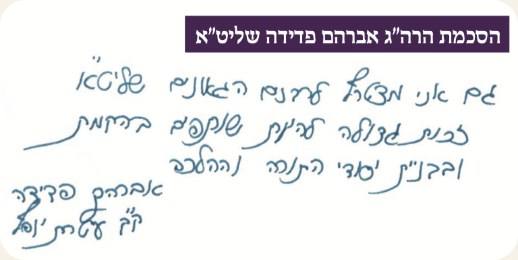 הסכמת הרה"ג אברהם פדידה שליט"א
גם אני מצטרף לרבנים הגאונים שליט"א
זכות גדולה להיות שותפים בהקמת
ובבניית יסודי התורה וההלכה
אברהם פדידה
ק"ק עטרת יוסף